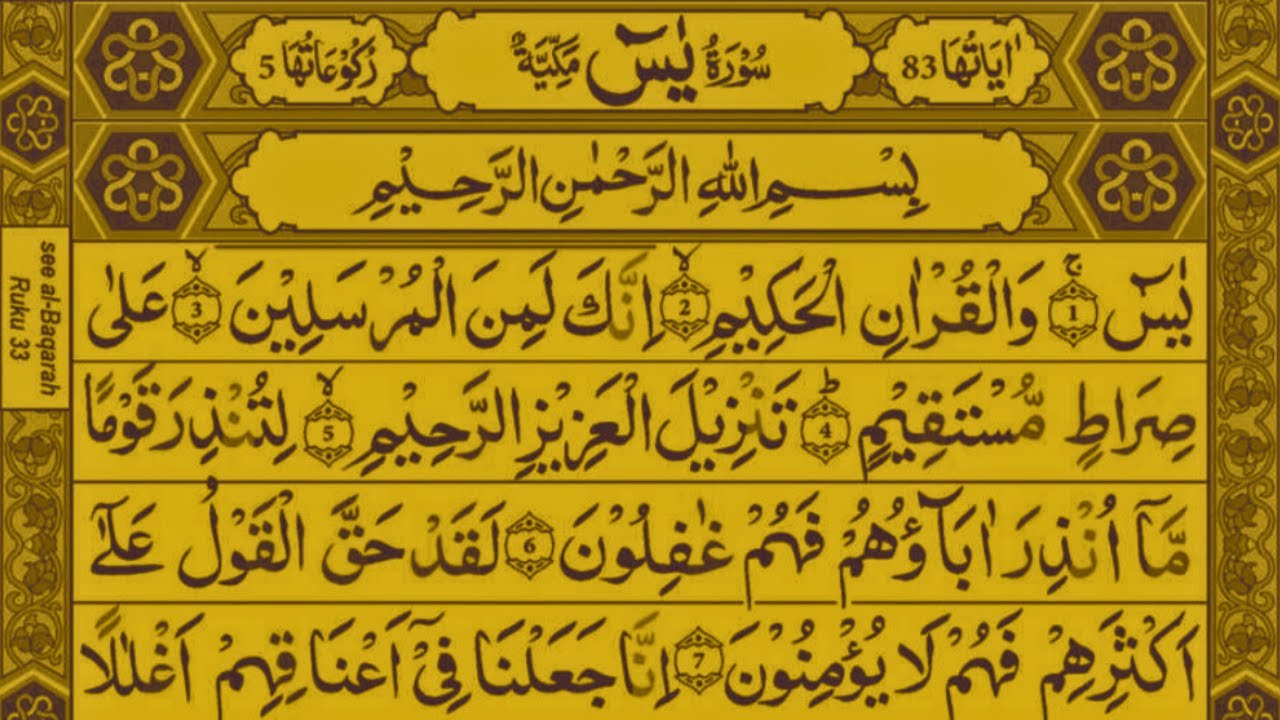 اٰيَاتُهَا 83 سُوْرَةُ يٰسٓ مَكِّيَّةٌ رُكُوْعَاتُهَا 5
بِسْمِ اللهِ الرَّحْمٰنِ الرَّحِيْمِ
يٰسٓ ۚ 1 وَالْقُرْاٰنِ الْحَكِيْمِ ۙ 2 اِنَّكَ لَمِنَ الْمُرْسَلِيْنَ ۙ 3 عَلٰى
صِرَاطٍ مُّسْتَقِيْمٍ ؕ 4 تَنْزِيْلَ الْعَزِيْزِ الرَّحِيْمِ ۙ 5 لِتُنْذِرَ قَوْمًا
مَّآ اُنْذِرَ اٰبَآؤُهُمْ فَهُمْ غٰفِلُوْنَ 6 لَقَدْ حَقَّ الْقَوْلُ عَلٰٓى
اَكْثَرِهِمْ فَهُمْ لَا يُؤْمِنُوْنَ 7 اِنَّا جَعَلْنَا فِيْٓ اَعْنَاقِهِمْ اَغْلٰلًا
see al-Baqarah
Ruku 33